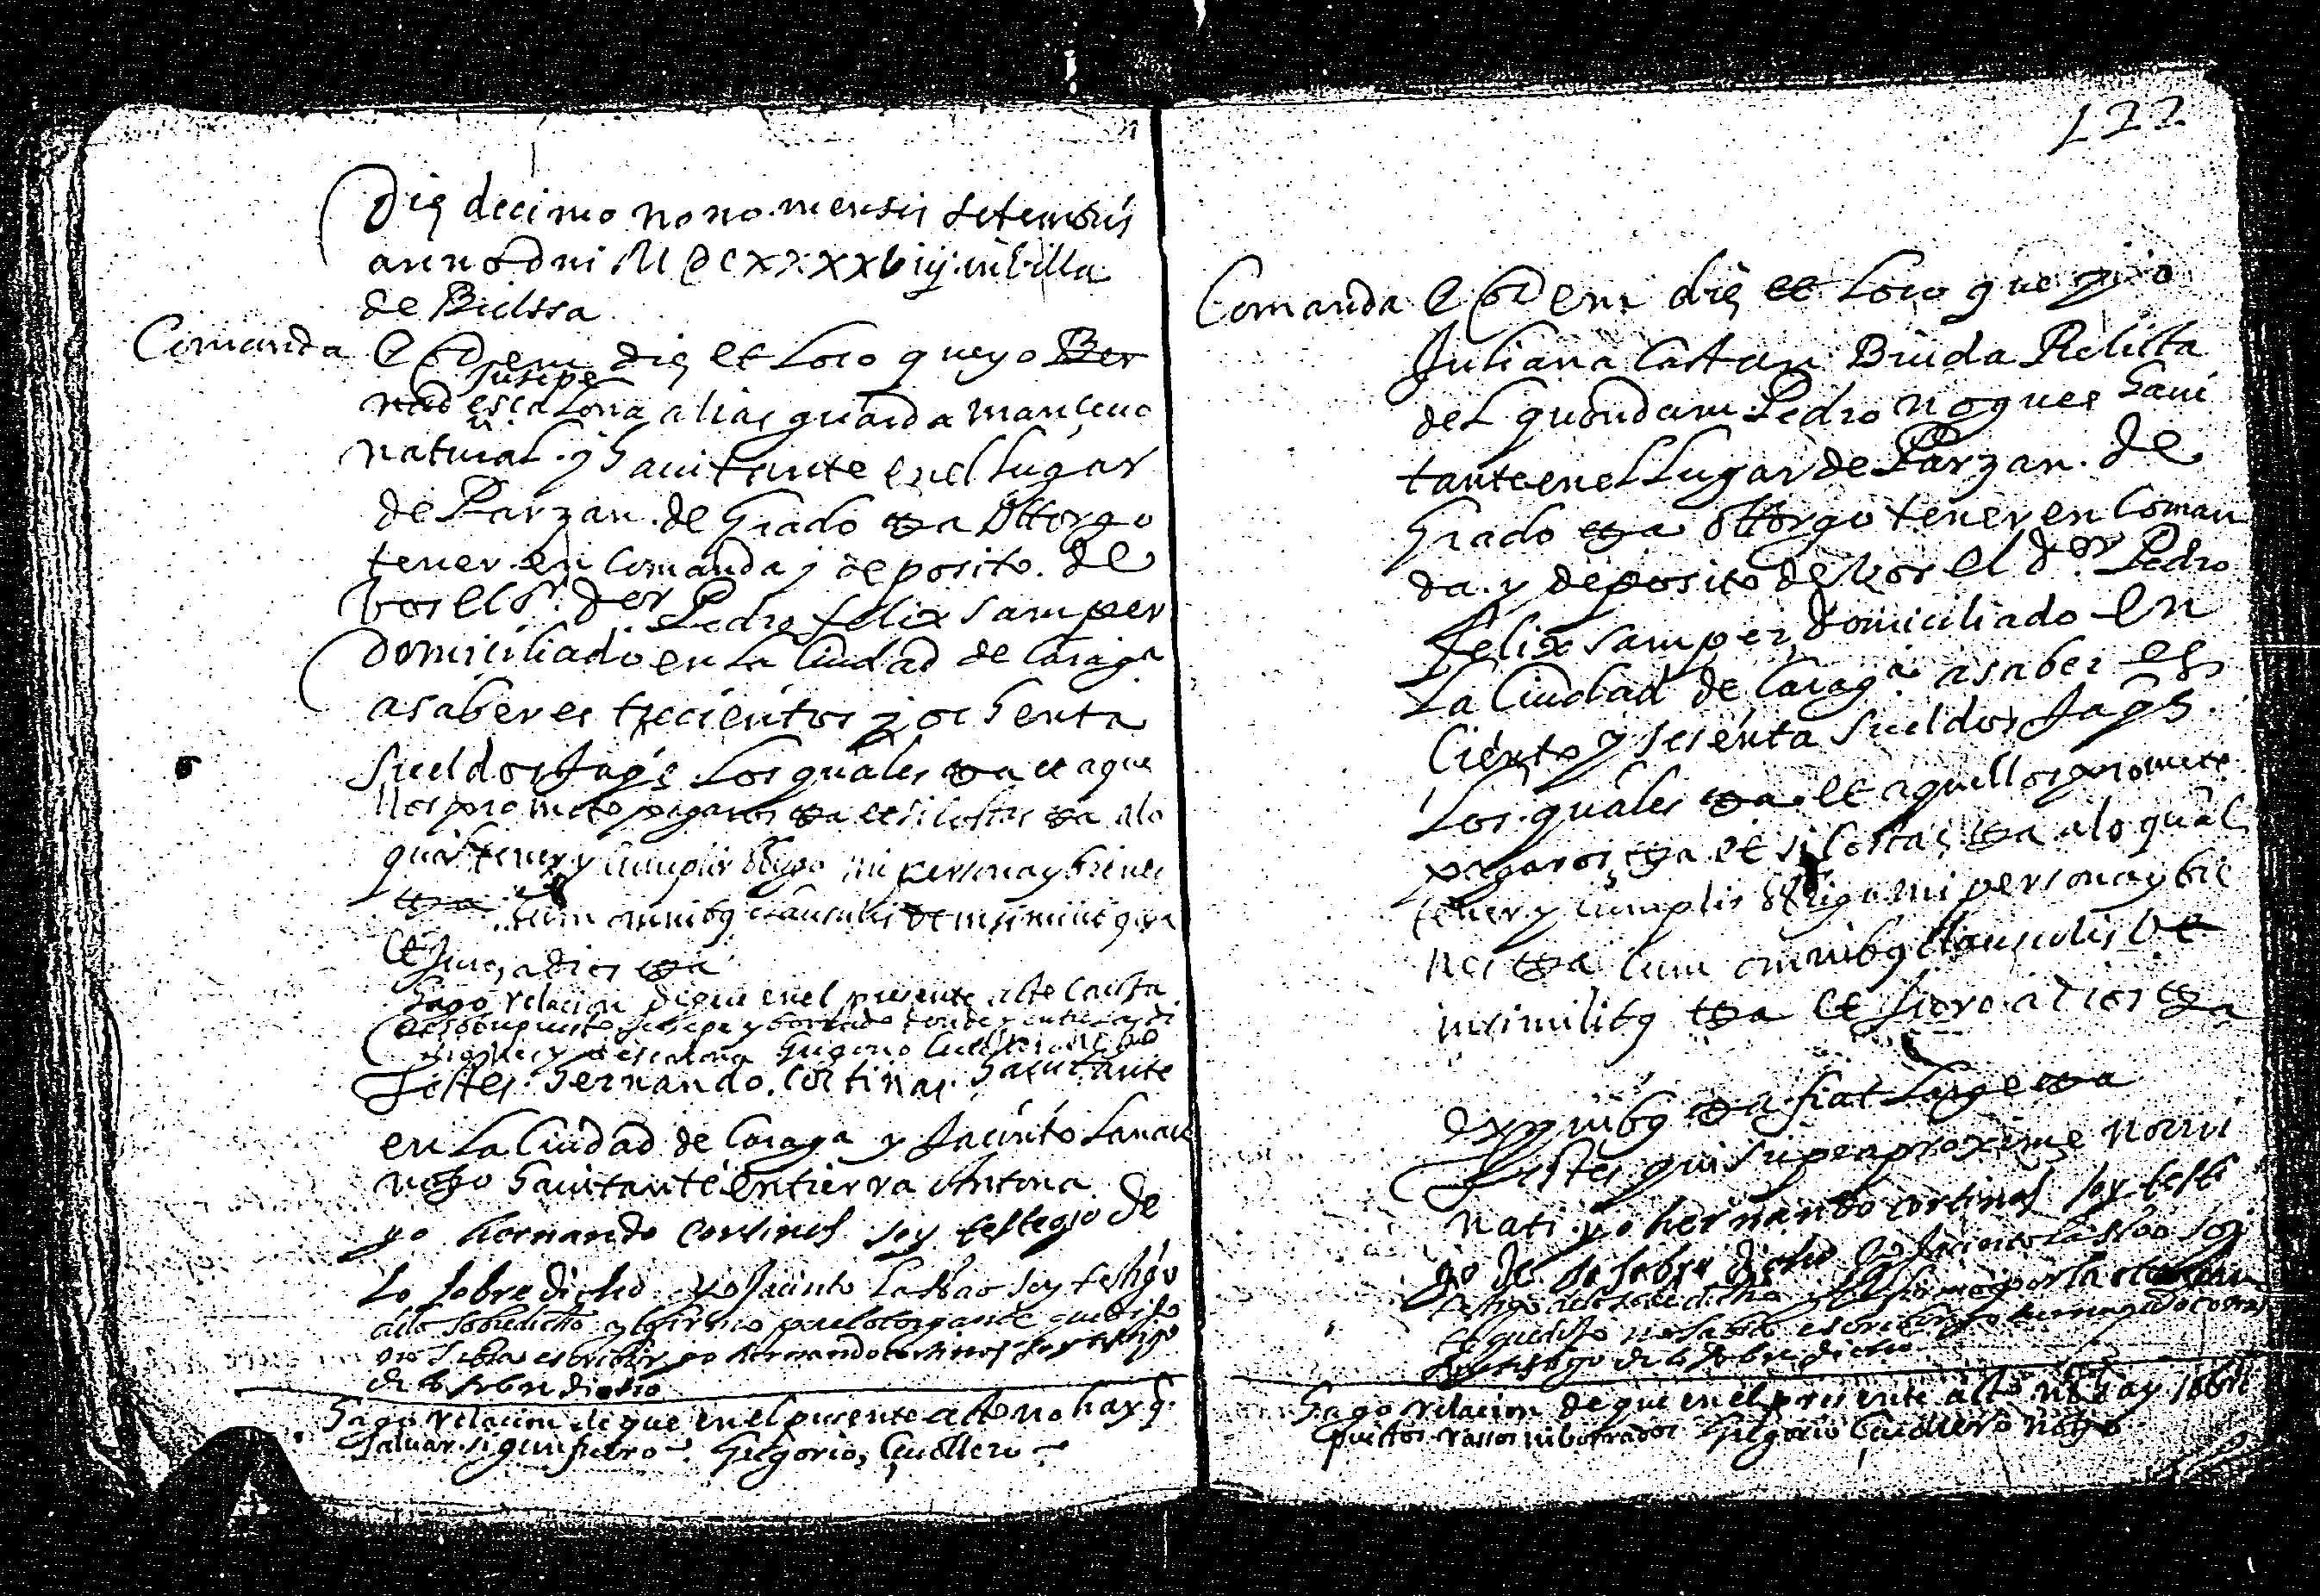 Die decimo nono mensis setembris
anno dni MDCXXXXViiij in billa
de Bielssa
Comanda
Eodem die et Loco que yo Ber
nad Jusepe escalona alias guarda mançeuo
natural y hauitante en el Lugar
de Parzan de grado etta ottorgo
tener en comanda y deposito de
bos el Sr. dor Pedro felix samper
Domiciliado en la Ciudad de Caragª
a saber es trecientos y ochenta
sueldos Jaqs. Los quales etta et aque
llos prometo pagaros etta et si costas etta a lo
qual tener y cumplir obligo mi persona y bienes
etta cum omnibus clausulis
et Juro a dios etta
hago relacion que en el presente acto
Gregorio Cuellero
Testes hernando cortinas hauitante
en La Ciudad de Caraga y Jacinto Lanao
hauitante en tierra Antona
yo hernando cortinas soy testigo de
Lo sobre dicho yo Jacinto Lanao soy testigo
de lo sobredicho y lo firmo por el otorgante que dijo
no saber escribir yo hernando cortinas soy testigo
de lo sobre dicho
hago relacion de que en el presente acto no hay q.
saluar sigun fuero Gregorio Cuellero
122
Comanda
Eodem die et Loco que yo
Juliana Castan Biuda Relicta
del quondam Pedro nogues haui
tante en el Lugar de Parzan de
grado etta ottorgo tener en coman
da y deposito de bos el dor Pedro
felix samper domiciliado en
La Ciudad de Caragª a saber es
Ciento y sesenta sueldos Jaqs.
Los quales etta et aquellos prometo
pagaros etta et si costas etta a lo qual
tener y cumplir obligo mi persona y bie
nes etta cum omnibus clausulis et
insimilibus etta et Juro a dios etta
ex quibus etta fiat Large etta
Testes qui supra proxime nomi
nati yo hernando cortinas soy testi
go de lo sobre dicho yo Jacinto Lanao soy
testigo de lo sobredicho y lo firmo por la otorgan
te que dijo no saber escribir yo hernando cortinas
soy testigo de lo sobre dicho
hago relacion de que en el presente acto no hay sobre
puestos rassos ni borrados Gregorio Cuellero noto